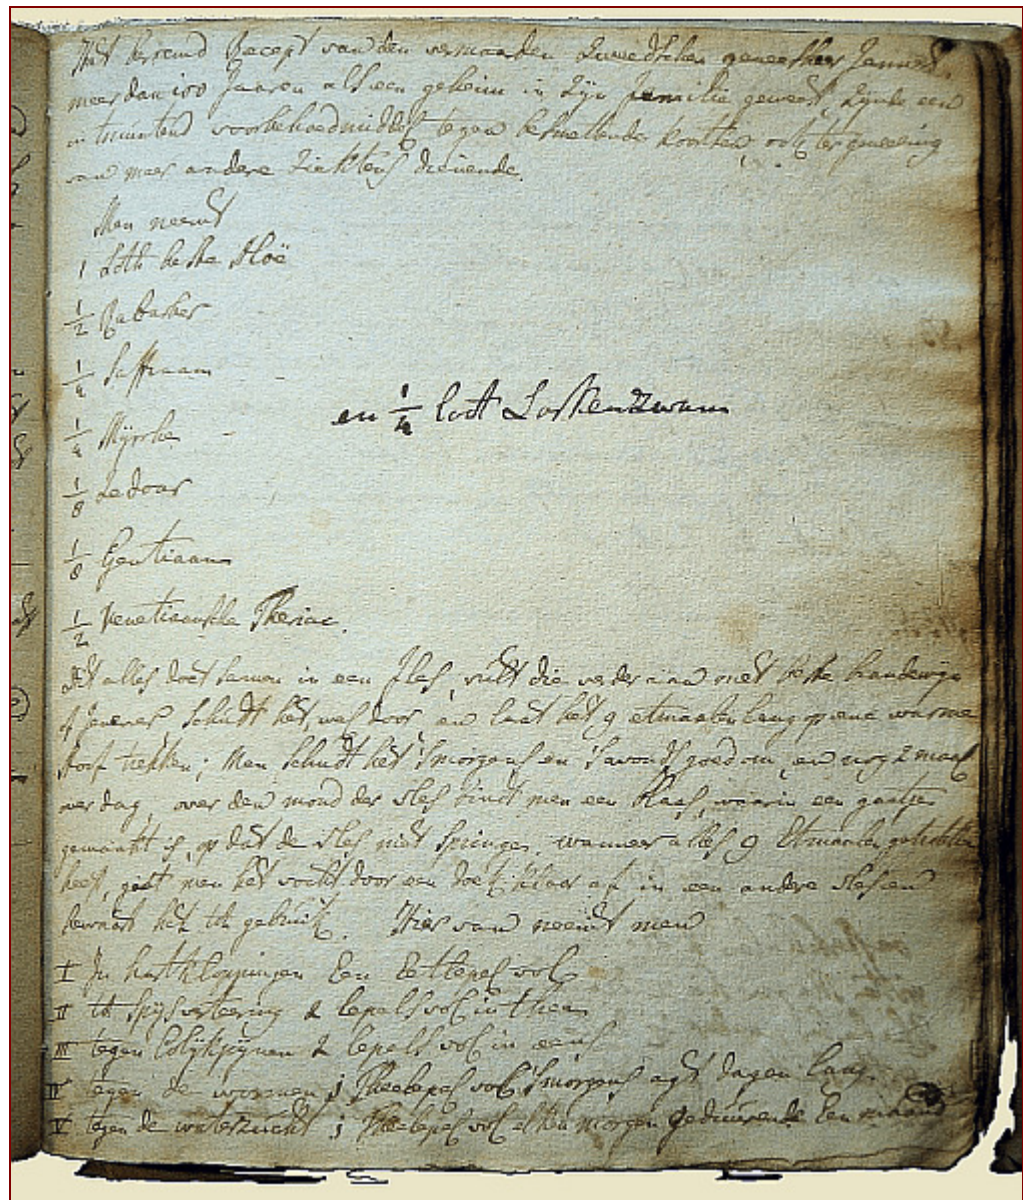 Het beroemd Recept van den vermaarden Zweedschen geneesheer
meer dan 100 Jaaren als een geheim in Zijn familie geweest, Zijnde een
uitmuntend voorbehoedmiddel tegen besmettende koortsen, ook ter geneezing
van meer andere Ziektens dienende.
Men neemt
1 Loth beste Aloë
1/2 Rabarber
1/4 Saffraan
1/4 Myrrhe
en 1/4 loth Lorkenzwam
1/8 Zedoar
1/8 Gentiaan
1/2 Venetiaansche Theriac.
Dit alles doet samen in een fles, vult die verder aan met beste brandewijn
of Jenever schudt het wel door en laat het 9 etmaalen lang op eene warme
stoof trekken; Men schudt het 'smorgens en 'savonds goed om, en nog 2 maal
per dag, over den mond der fles bindt men een blaas, waarin een gaatjen
gemaakt is, op dat de fles niet springe, wanneer alles 9 Etmaalen getrokken
heeft, giet men het vocht door een doek, klaar af in een andere fles en
bewaart het tot gebruik. Hier van neemt men
I In hartkloppingen Een Eetlepel vol
II tot spijsverteering 2 lepels vol in thee
III tegen Colijkpijnen 2 lepels vol in eens
IV tegen de wormen j Theelepel vol 'smorgens agt dagen lang
V tegen de waterzucht j Theelepel vol elken morgen geduurende Een maand